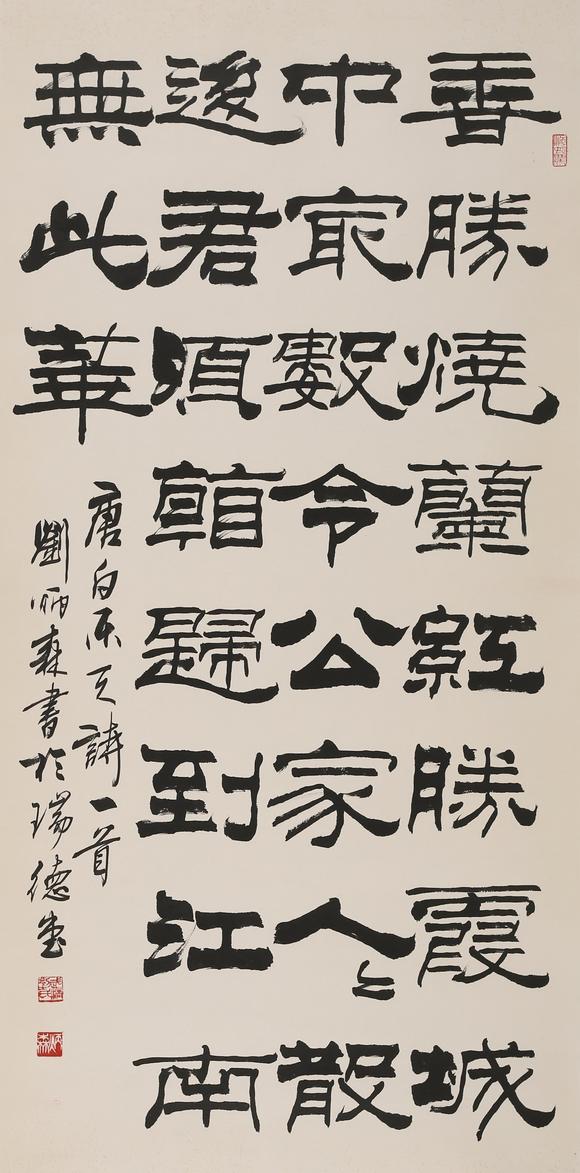 香勝燒蘭紅勝霞城
中最數令公家人々散
後君須看歸到江南
無此華
唐白乐天詩一首
劉炳森書於瑞德堂